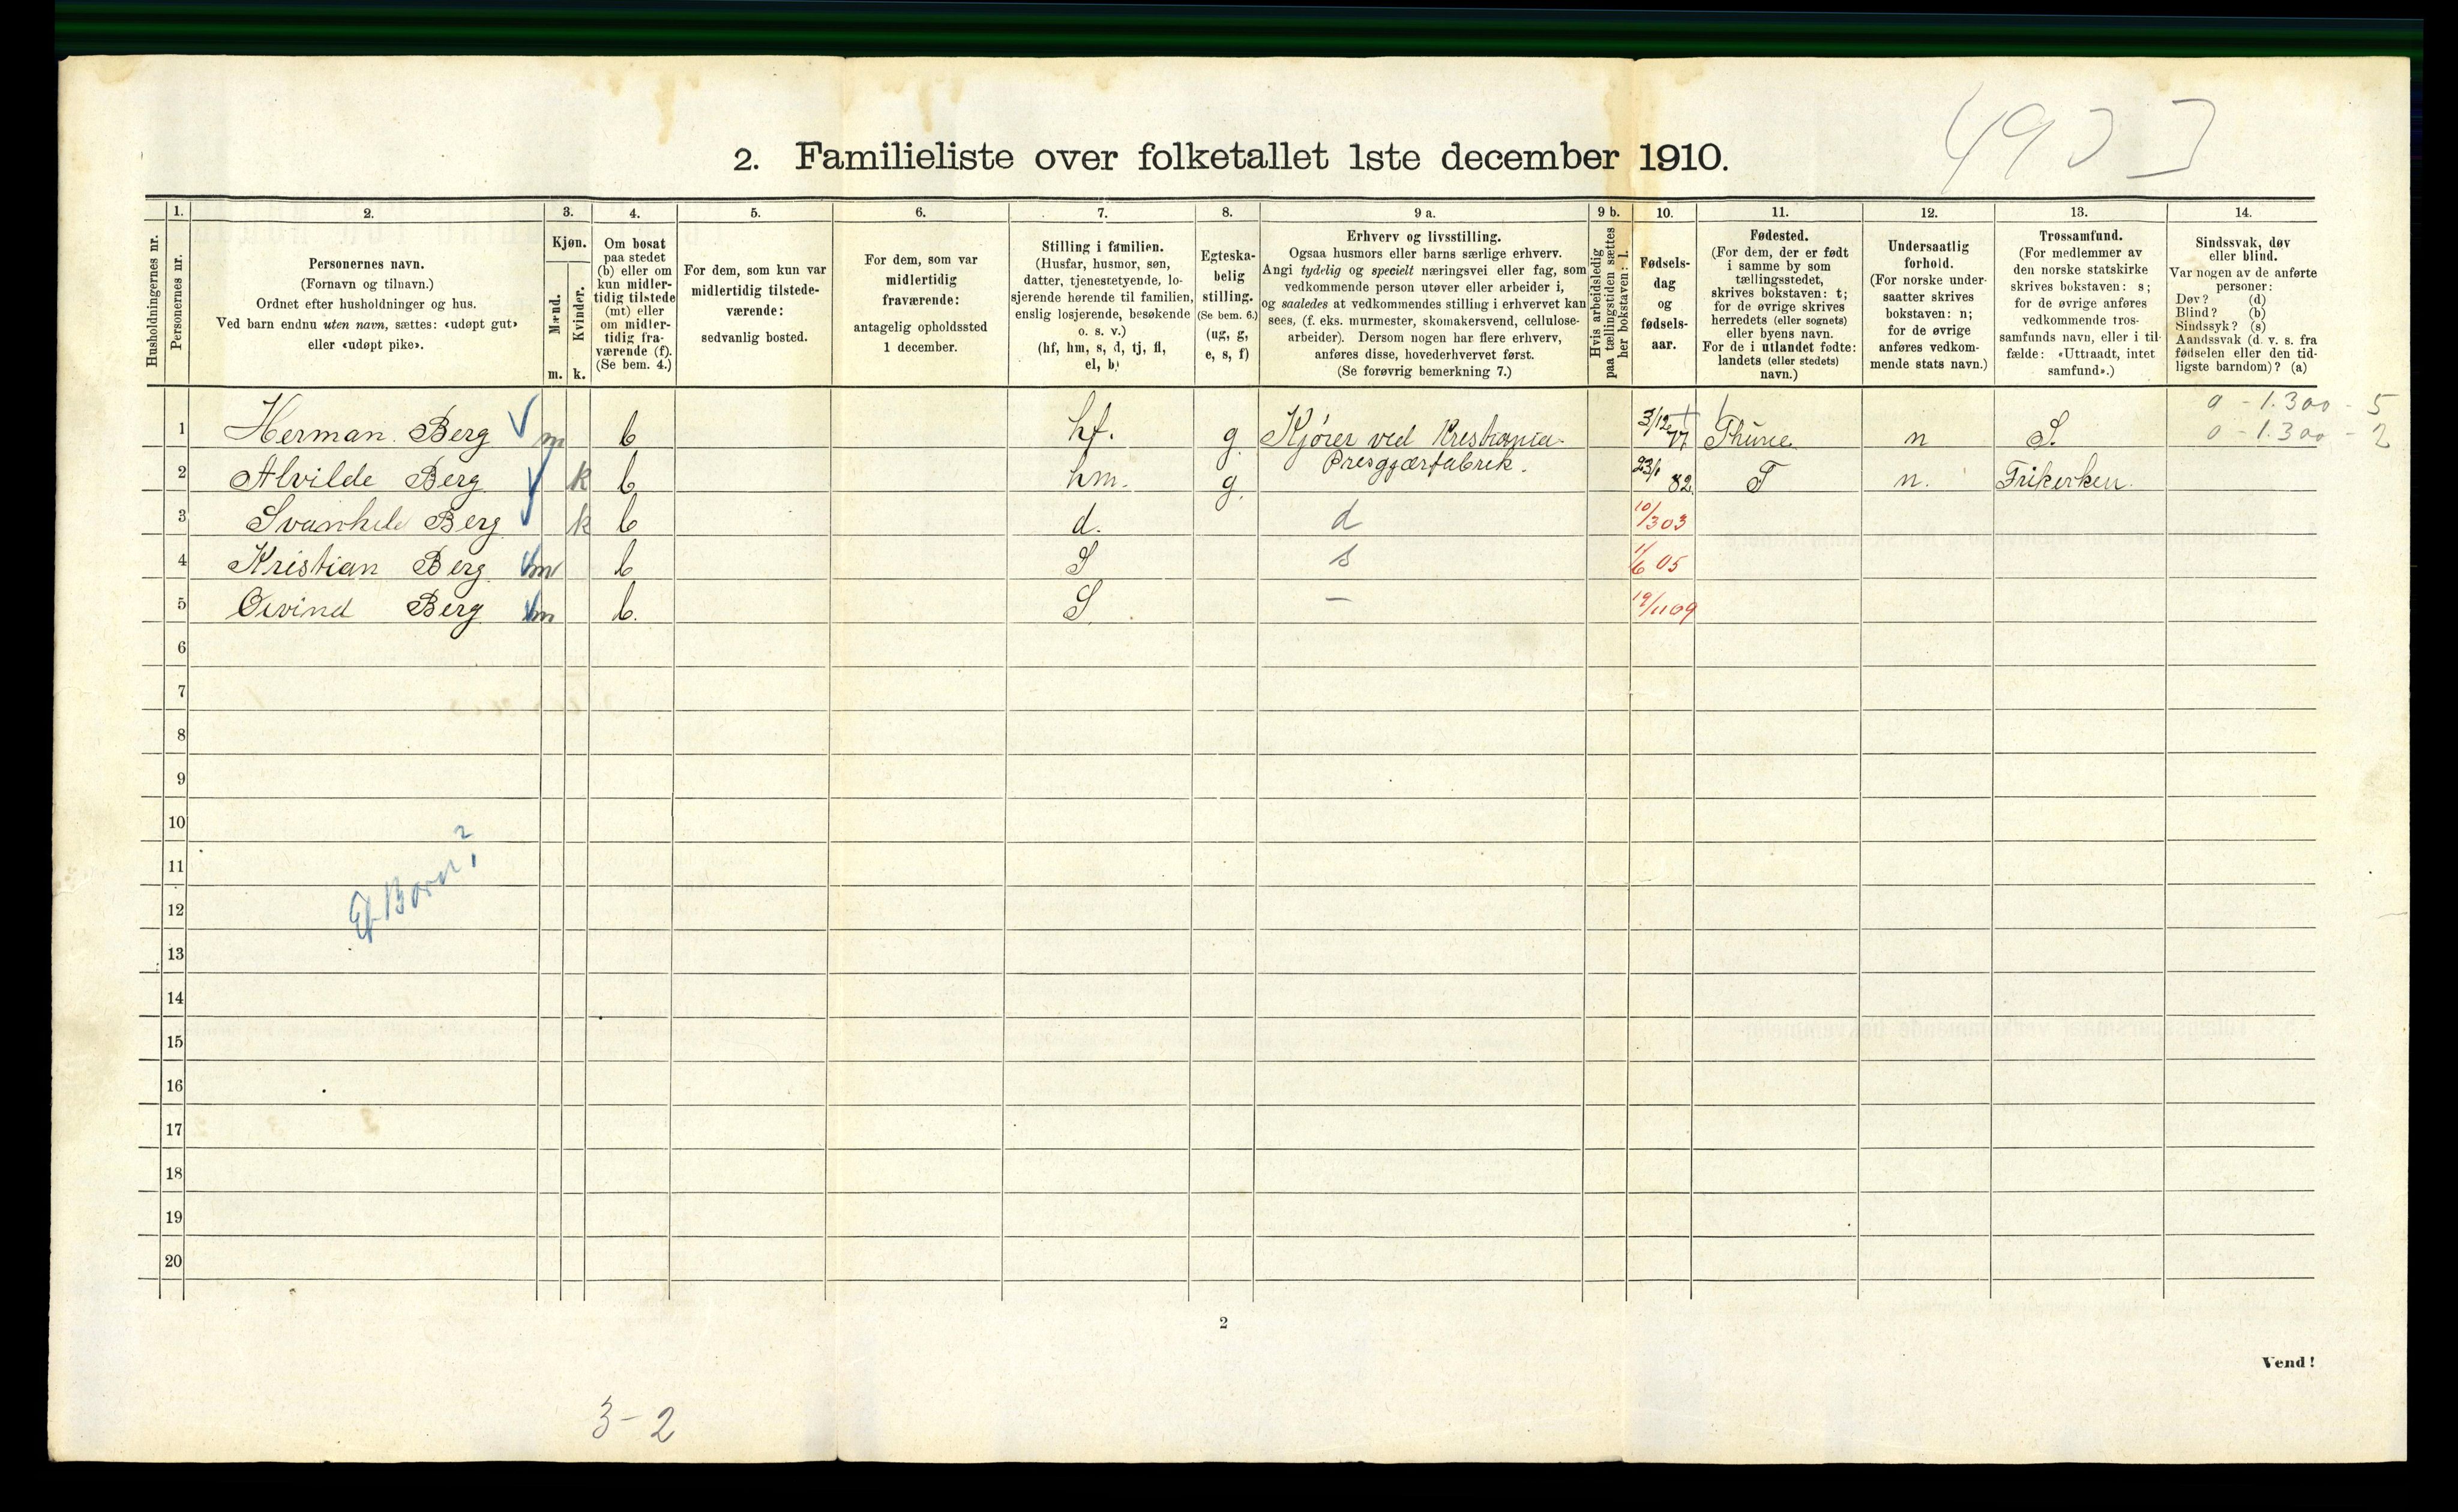 4933
2. Familieliste over folketallet 1ste december 1910.
Husholdningernes nr.
1. Personernes nr.
2. Personernes navn.
(Fornavn og tilnavn.)
Ordnet efter husholdninger og hus.
Ved barn endnu uten navn, sættes: «udøpt gut»
eller «udøpt pike».
3. Kjøn.
Mænd. m.
Kvinder. k.
4. Om bosat
paa stedet
(b) eller om
kun midler-
tidig tilstede
(mt) eller
om midler-
tidig fra-
værende (f).
(Se bem. 4.)
5. For dem, som kun var
midlertidig tilstede-
værende:
sedvanlig bosted.
6. For dem, som var
midlertidig
fraværende:
antagelig opholdssted
1 december.
7. Stilling i familien.
(Husfar, husmor, søn,
datter, tjenestetyende, lo-
sjerende hørende til familien,
enslig losjerende, besøkende
o. s. v.)
(hf, hm, s, d, tj, fl,
el, b)
8. Egteska-
belig
stilling.
(Se bem. 6.)
(ug, g,
e, s, f)
9 a. Erhverv og livsstilling.
Ogsaa husmors eller barns særlige erhverv.
Angi tydelig og specielt næringsvei eller fag, som
vedkommende person utøver eller arbeider i,
og saaledes at vedkommendes stilling i erhvervet kan
sees, (f. eks. murmester, skomakersvend, cellulose-
arbeider). Dersom nogen har flere erhverv,
anføres disse, hovederhvervet først.
(Se forøvrig bemerkning 7.)
9 b. Hvis arbeidsledig
paa tællingstiden sættes
her bokstaven: l.
10. Fødsels-
dag
og
fødsels-
aar.
11. Fødested.
(For dem, der er født
i samme by som
tællingsstedet,
skrives bokstaven: t;
for de øvrige skrives
herredets (eller sognets)
eller byens navn.
For de i utlandet fødte:
landets (eller stedets)
navn.)
12. Undersaatlig
forhold.
(For norske under-
saatter skrives
bokstaven: n;
for de øvrige
anføres vedkom-
mende stats navn.)
13. Trossamfund.
(For medlemmer av
den norske statskirke
skrives bokstaven: s;
for de øvrige anføres
vedkommende tros-
samfunds navn, eller i til-
fælde: «Uttraadt, intet
samfund».)
14. Sindssvak, døv
eller blind.
Var nogen av de anførte
personer:
Døv? (d)
Blind? (b)
Sindssyk? (s)
Aandssvak (d. v. s. fra
fødselen eller den tid-
ligste barndom)? (a)
0 - 1.300 - 5
1 Herman Berg m b hf. g Kjører ved Kristiania 3/12 77 Thune n S. 0 - 1.300 - 2
Presgjærfabrik.
2 Alvilde Berg k b hm. g. 23/1 82 T n. Frikerken.
3 Svanhild Berg k b d. d 10/3 03
4 Kristian Berg m b S s 1/6 05
5 Øivind Berg m b. S — 19/11 09
6
7
8
9
10
11
12
13
14
15
16
17
18
19
20
2
Vend!
3-2